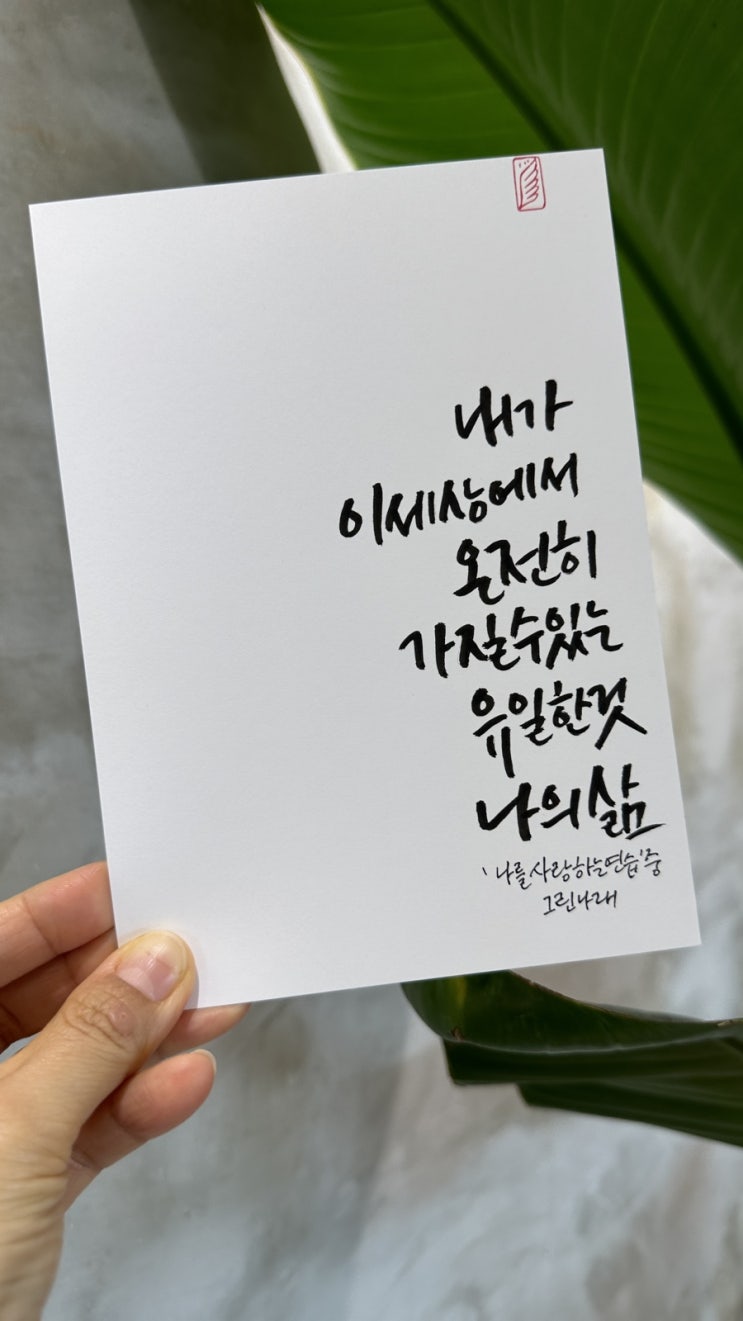 내가
이세상에서
온전히
가질수있는
유일한것
나의삶
'나를사랑하는연습'중
그린나래